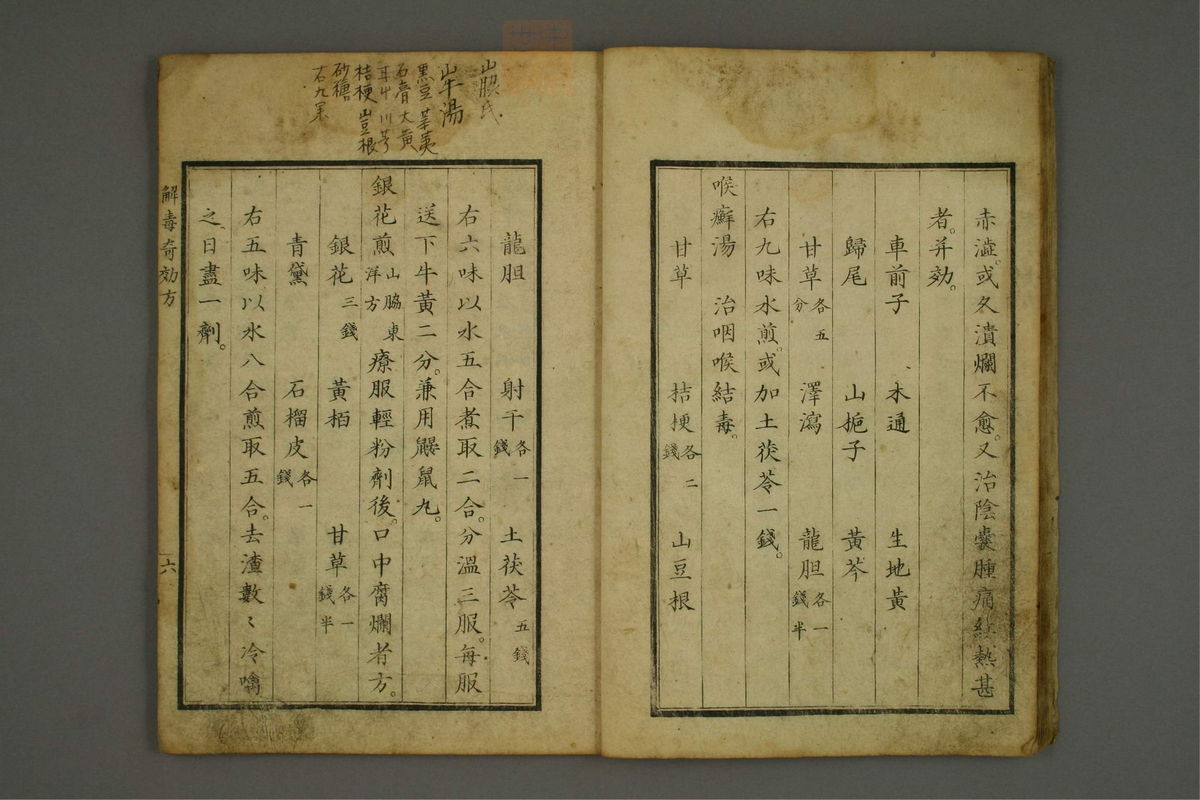 赤澁。或久潰爛不愈。又治陰嚢腫痛紅熱甚
者。并効。
車前子　木通　生地黄
歸尾　山梔子　黄芩
甘草各五分　澤瀉　龍胆各一錢半
右九味水煎。或加土茯苓一錢。
喉癬湯　治咽喉結毒。
甘草　桔梗各二錢　山豆根
山脇氏
山牛湯
黒豆　茱萸
石膏　大黄
耳草　川芎
桔梗　山豆根
砂糖
右九味
龍胆　射干各一錢　土茯苓五錢
右六味以水五合煮取二合。分温三服。毎服
送下牛黄二分。兼用鼴鼠丸。
銀花煎山脇東洋方　療服輕粉劑後。口中腐爛者方。
銀花三錢　黄栢　甘草各一錢半
青黛　石榴皮各一錢
右五味以水八合煎取五合。去渣數〻冷噙
之、日盡一劑。
解毒奇効方　六